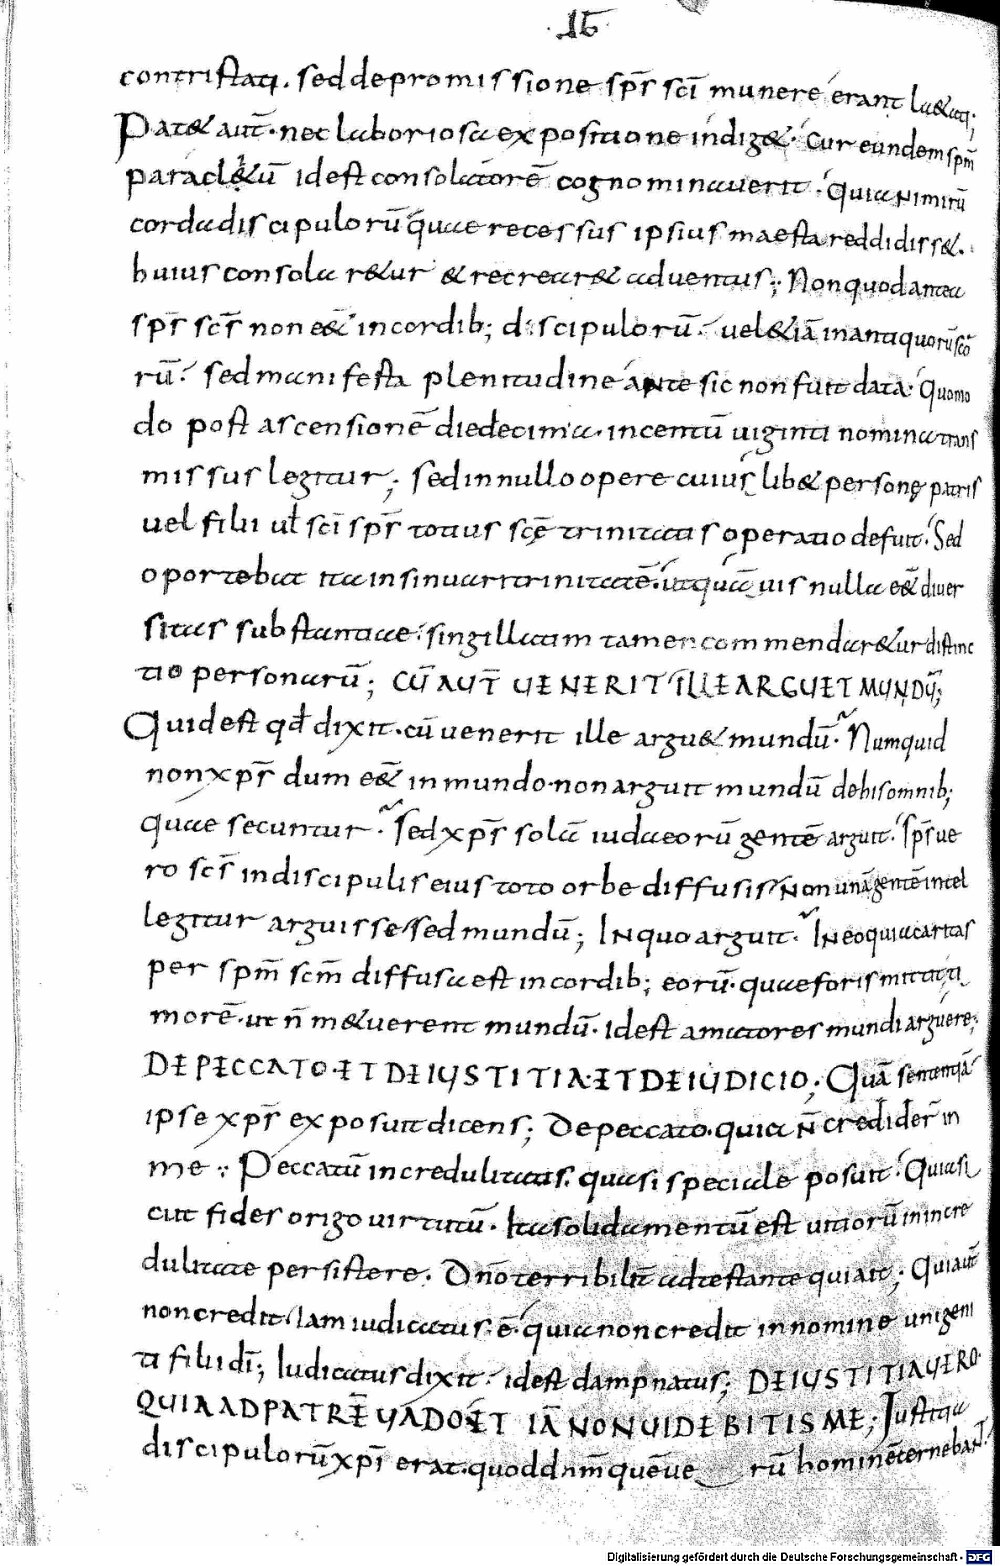 15
contristati. sed de promissione sp̄s sc̄i munere erant l&ati;
Pat& aut̄. nec laboriosa expositione indig&. cur eundem sp̄m
paracl&ū id est consolatorē cognominaverit. Quia nimirū
corda discipulorū quae recessus ipsius maesta reddidiss&.
huius consolar&ur & recrear& adventus; Non quod antea
sp̄s sc̄s non eē& in cordib; discipulorū. vel &iā in antiquorū scō
rū. sed manifesta plenitudine ante sic non fuit data. Quomo
do post ascensionē die decima. in centū viginti nomina trans
missus legitur; sed in nullo opere cuiuslib& personę patris
vel filii ul̄ sc̄i sp̄s totius scę̄ trinitatis operatio defuit. Sed
oportebat ita insinuari trinitatē. ut quāvis nulla eē& diver
sitas substantiae. singillatim tamen commendar&ur distinc
tio personarū; CŪ AUT̄ VENERIT ILLE ARGUET MUNDŪ;
Quid est qd̄ dixit. cū venerit ille argu& mundū. Numquid
non xp̄s dum eē& in mundo. non arguit mundū de his omnib;
quae secuntur. Sed xp̄s solā iudaeorū gentē arguit. Sp̄s ve
ro sc̄s in discipulis eius toto orbe diffusis. Non unā gentē intel
legitur arguisse. sed mundū; In quo arguit. In eo quia caritas
per sp̄m sc̄m diffusa est in cordib; eorū. quae foris mittit ti
morē. ut n̄ m&uerent mundū. id est amatores mundi arguere;
DE PECCATO. ET DE IUSTITIA. ET DE IUDICIO; Quā sententiā
ipse xp̄s exposuit dicens; De peccato. quia n̄ credider̄ in
me; Peccatū incredulitatis. quasi speciale posuit. Quia si
cut fides origo virtutū. Ita solidamentū est vitiorū in incre
dulitate persistere. Dn̄o terribilit̄ adtestante qui ait; Qui aut̄
non credit. Iam iudicatus ē. quia non credit in nomine unigeni
ti filii dī; Iudicatus dixit. id est dampnatus; DE IUSTITIA VERO.
QUIA AD PATRĒ VADO. ET IĀ NON VIDEBITIS ME; Iustitia
discipulorū xp̄i erat. quod dn̄m quē ve rū hominē cernebant.
Digitalisierung gefördert durch die Deutsche Forschungsgemeinschaft - DFG